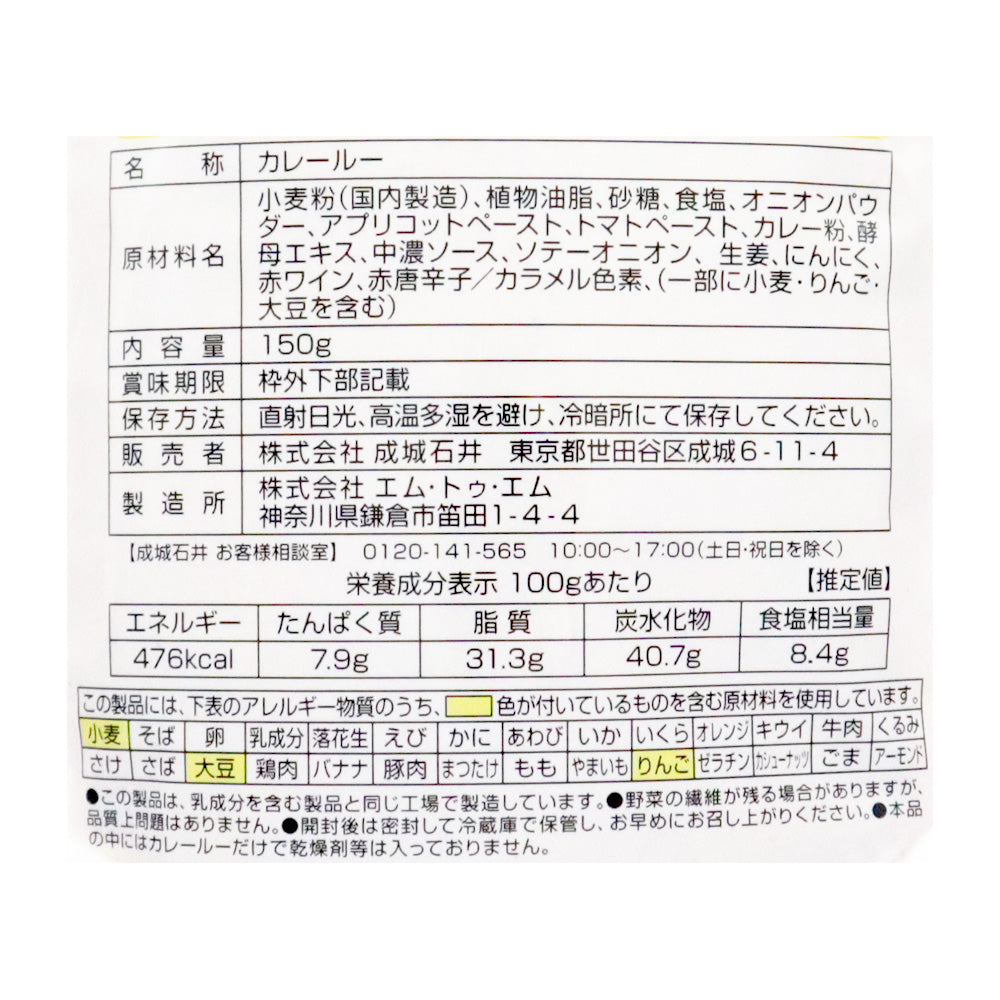 名称 カレールー
原材料名 小麦粉(国内製造)、植物油脂、砂糖、食塩、オニオンパウ
ダー、アプリコットペースト、トマトペースト、カレー粉、酵
母エキス、中濃ソース、ソテーオニオン、生姜、にんにく、
赤ワイン、赤唐辛子/カラメル色素、(一部に小麦・りんご・
大豆を含む)
内容量 150g
賞味期限 枠外下部記載
保存方法 直射日光、高温多湿を避け、冷暗所にて保存してください。
販売者 株式会社 成城石井 東京都世田谷区成城6-11-4
製造所 株式会社 エム・トゥ・エム
神奈川県鎌倉市笛田1-4-4
【成城石井 お客様相談室】 0120-141-565 10:00〜17:00(土日・祝日を除く)
栄養成分表示 100gあたり 【推定値】
エネルギー たんぱく質 脂質 炭水化物 食塩相当量
476kcal 7.9g 31.3g 40.7g 8.4g
この製品には、下表のアレルギー物質のうち、 色が付いているものを含む原材料を使用しています。
小麦 そば 卵 乳成分 落花生 えび かに あわび いか いくら オレンジ キウイ 牛肉 くるみ
さけ さば 大豆 鶏肉 バナナ 豚肉 まつたけ もも やまいも りんご ゼラチン カシューナッツ ごま アーモンド
●この製品は、乳成分を含む製品と同じ工場で製造しています。●野菜の繊維が残る場合がありますが、
品質上問題はありません。●開封後は密封して冷蔵庫で保管し、お早めにお召し上がりください。●本品
の中にはカレールーだけで乾燥剤等は入っておりません。